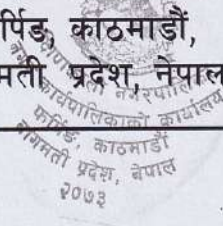 र्पिङ, काठमाडौं,
मती प्रदेश, नेपाल
नगरपालि
कार्यपालिकाको कार्यालय
फर्पिङ, काठमाडौं
बागमती प्रदेश, नेपाल
२०७३